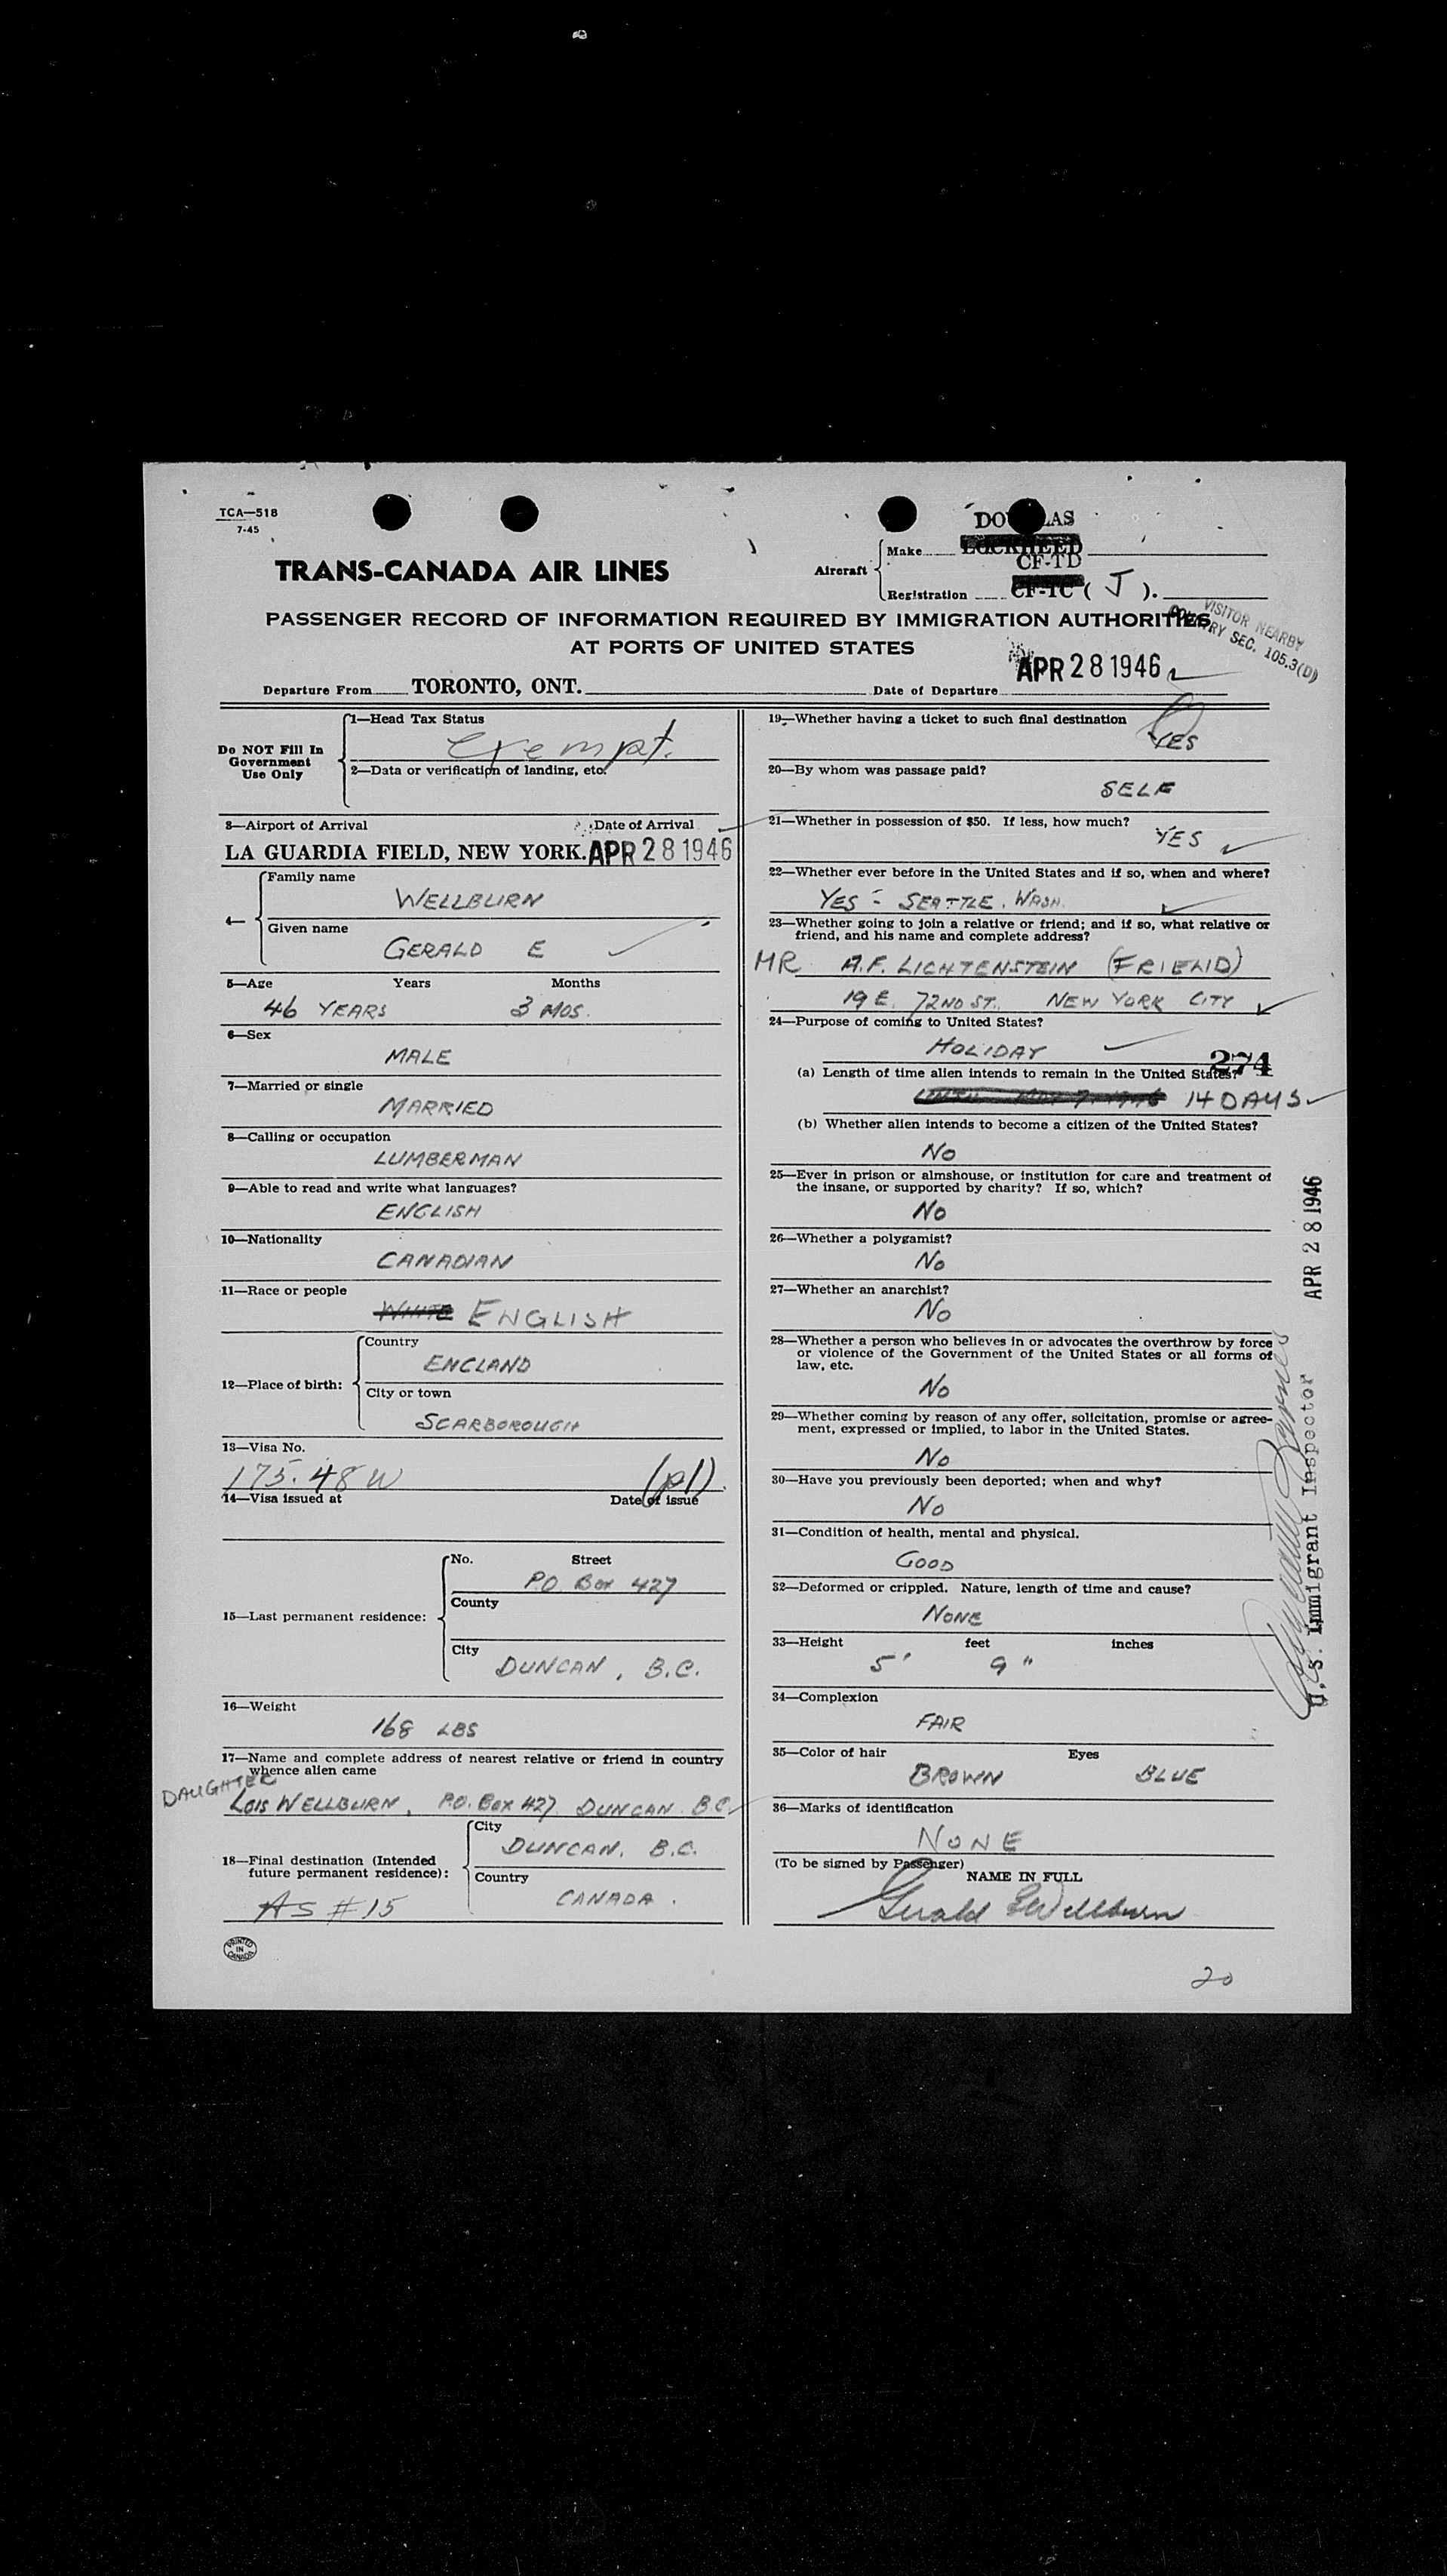 TCA—518
7-45
TRANS-CANADA AIR LINES
Aircraft
Make
DOUGLAS
LOCKHEED
CF-TD
Registration CF-TC ( J ).
PASSENGER RECORD OF INFORMATION REQUIRED BY IMMIGRATION AUTHORITIES
AT PORTS OF UNITED STATES
VISITOR NEARBY
COUNTRY SEC. 105.3(D)
Departure From TORONTO, ONT.
Date of Departure APR 28 1946
Do NOT Fill In
Government
Use Only
1—Head Tax Status
Exempt.
2—Data or verification of landing, etc.
3—Airport of Arrival Date of Arrival
LA GUARDIA FIELD, NEW YORK. APR 28 1946
4—
Family name
WELLBURN
Given name
GERALD E
5—Age Years Months
46 YEARS 3 MOS.
6—Sex
MALE
7—Married or single
MARRIED
8—Calling or occupation
LUMBERMAN
9—Able to read and write what languages?
ENGLISH
10—Nationality
CANADIAN
11—Race or people
WHITE ENGLISH
12—Place of birth:
Country
ENGLAND
City or town
SCARBOROUGH
13—Visa No.
175.48 W (pl).
14—Visa issued at Date of issue
15—Last permanent residence:
No. Street
P.O. Box 427
County
City
DUNCAN, B.C.
16—Weight
168 LBS
17—Name and complete address of nearest relative or friend in country
whence alien came
DAUGHTER
LOIS WELLBURN, P.O. BOX 427 DUNCAN B.C.
18—Final destination (Intended
future permanent residence):
City
DUNCAN, B.C.
Country
CANADA.
AS #15
PRINTED
IN
CANADA
19—Whether having a ticket to such final destination
YES
20—By whom was passage paid?
SELF
21—Whether in possession of $50. If less, how much?
YES
22—Whether ever before in the United States and if so, when and where?
YES - SEATTLE. WASH.
23—Whether going to join a relative or friend; and if so, what relative or
friend, and his name and complete address?
MR A.F. LICHTENSTEIN (FRIEND)
19 E. 72ND ST. NEW YORK CITY
24—Purpose of coming to United States?
HOLIDAY
274
(a) Length of time alien intends to remain in the United States?
14 DAYS
(b) Whether alien intends to become a citizen of the United States?
NO
25—Ever in prison or almshouse, or institution for care and treatment of
the insane, or supported by charity? If so, which?
NO
26—Whether a polygamist?
NO
27—Whether an anarchist?
NO
28—Whether a person who believes in or advocates the overthrow by force
or violence of the Government of the United States or all forms of
law, etc.
NO
29—Whether coming by reason of any offer, solicitation, promise or agree-
ment, expressed or implied, to labor in the United States.
NO
30—Have you previously been deported; when and why?
NO
31—Condition of health, mental and physical.
GOOD
32—Deformed or crippled. Nature, length of time and cause?
NONE
33—Height feet inches
5' 9"
34—Complexion
FAIR
35—Color of hair Eyes
BROWN BLUE
36—Marks of identification
NONE
(To be signed by Passenger)
NAME IN FULL
Gerald E Wellburn
APR 28 1946
U.S. Immigrant Inspector
20